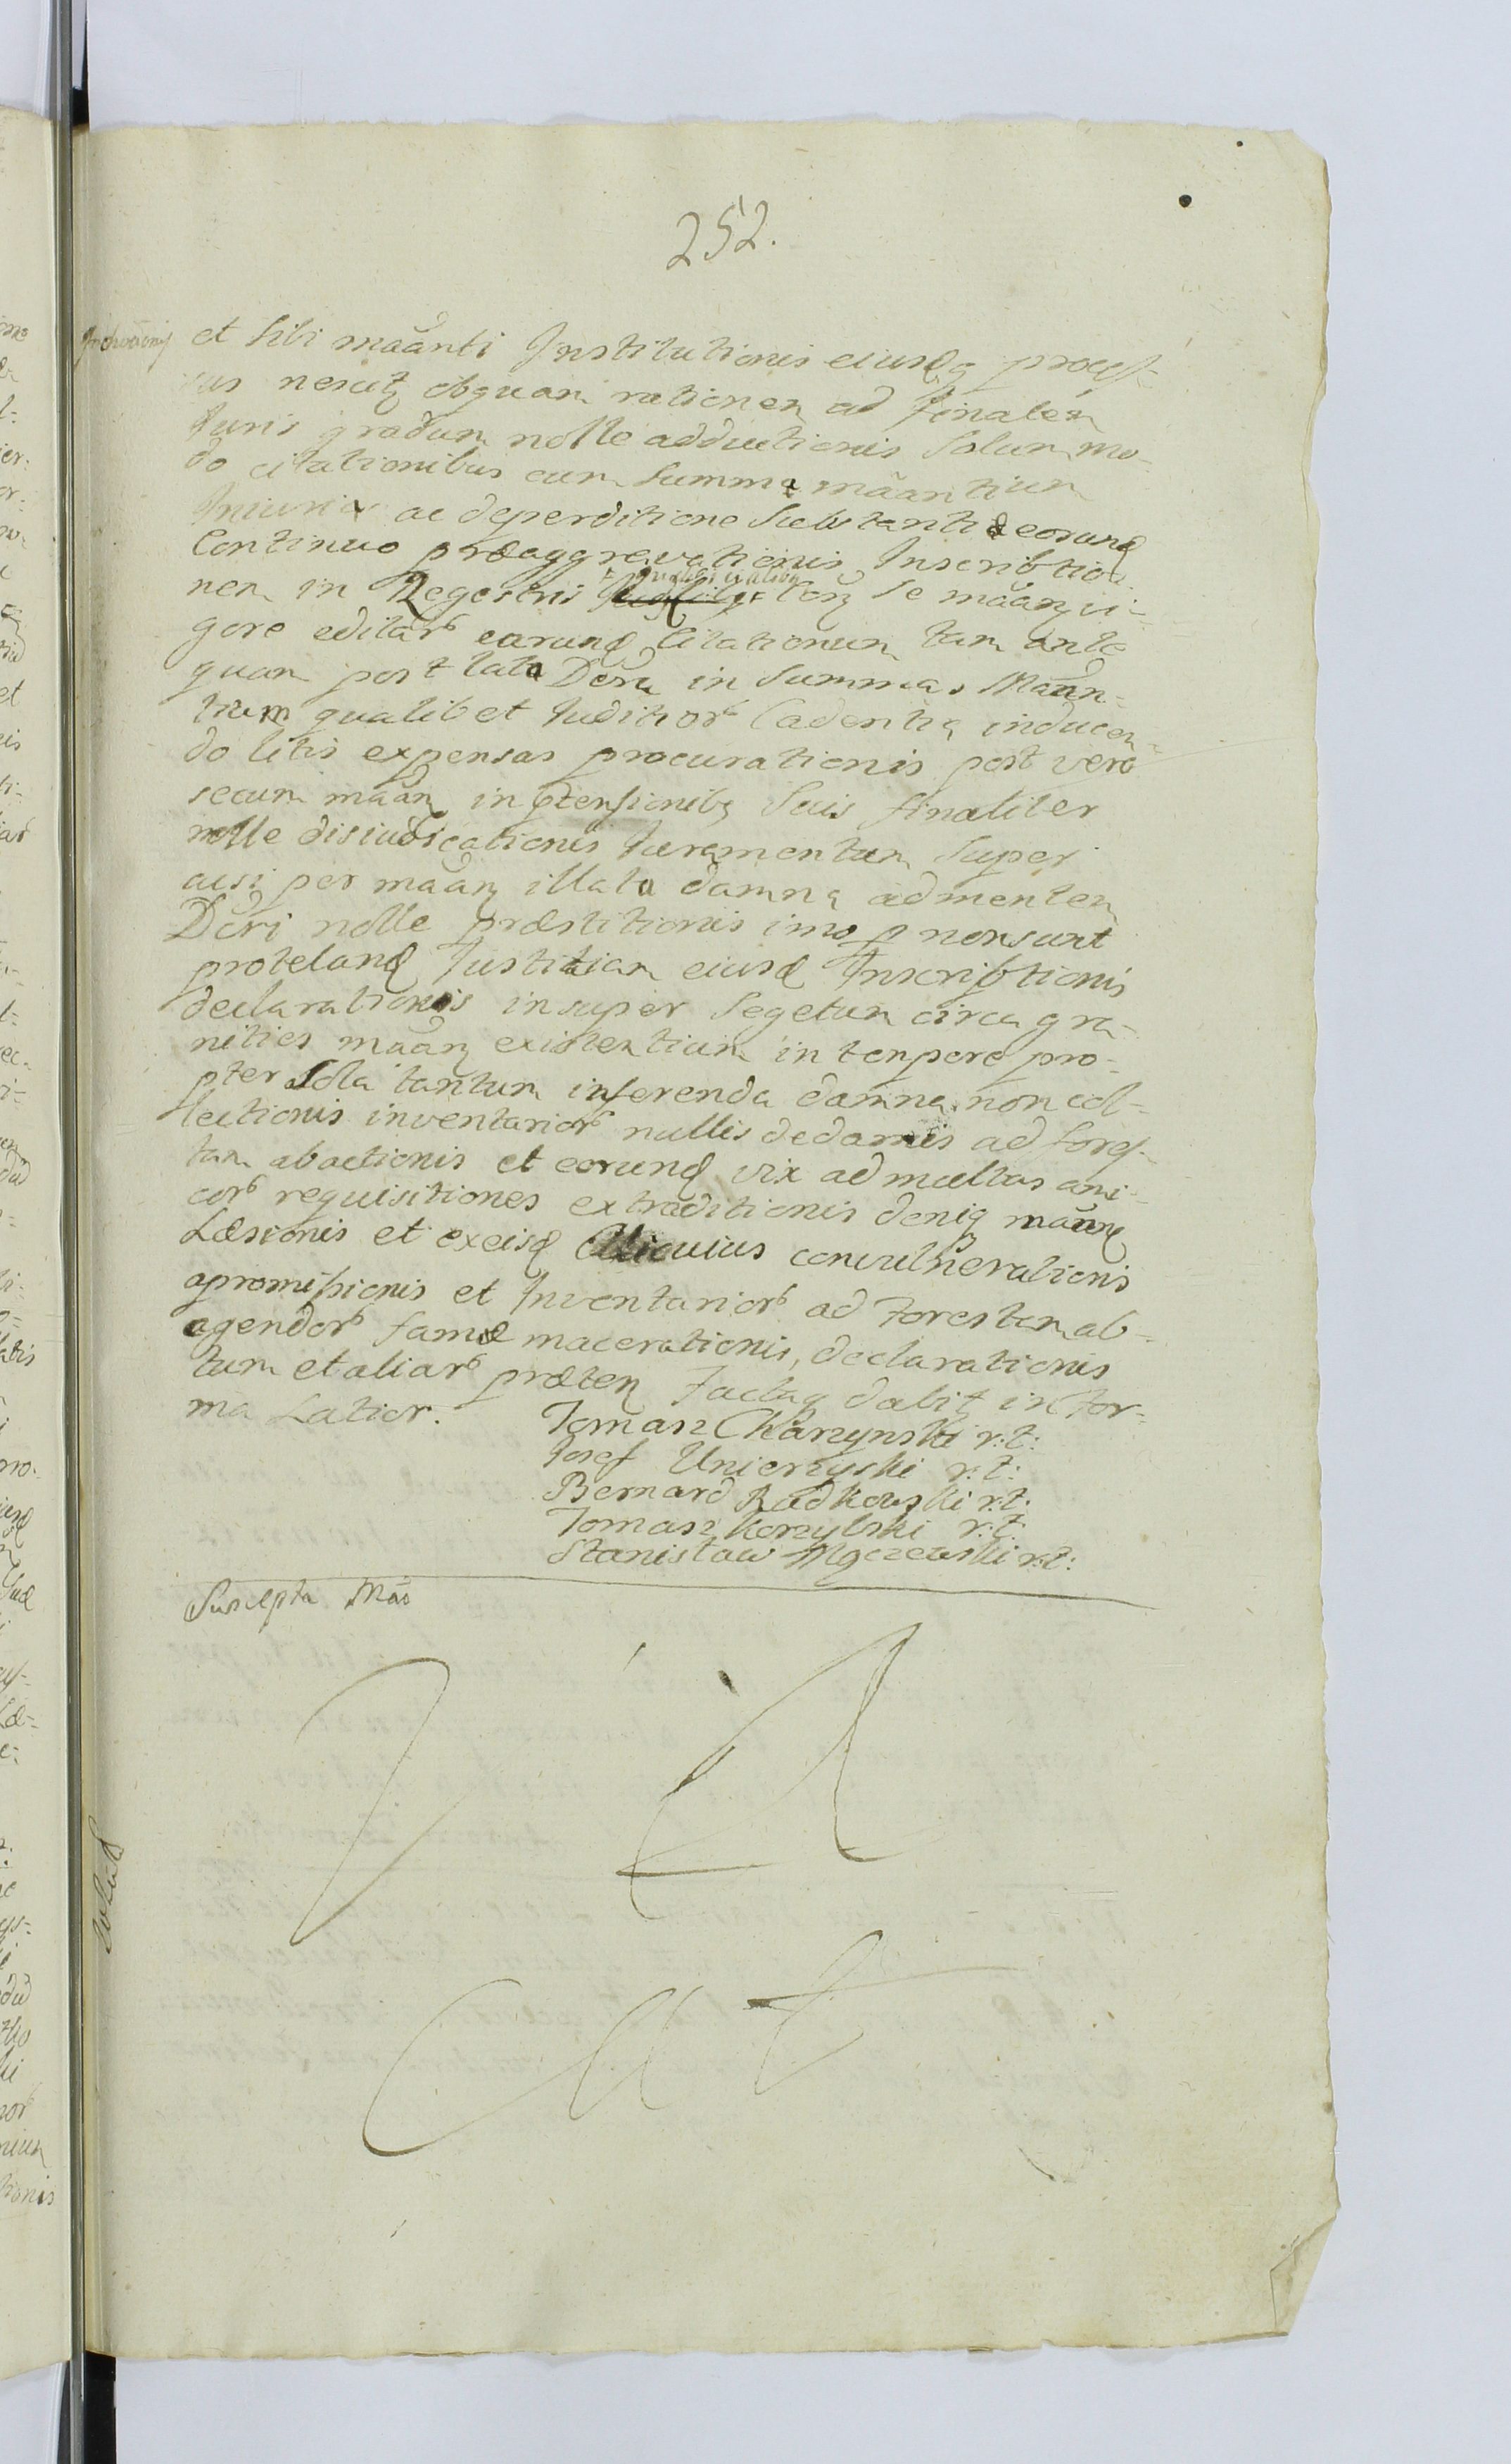 252.
et sibi maanti Institutionis eiusq process-
sus nesciŧ obquam rationem ad Finalem
Iuris gradum nolle adductionis Solum mo-
do citationibus cum Summa maantium
Iniuria ac deperditione Substantiæ eorund
Continuo præaggrevationis Inscribtio-
nem in Regestris se maanz vi-
gore editar earund Citationum tam ante
quam post lata Decta in Summas Maan-
tium qualibet Iuditior Cadentia inducen-
do litis expensas procurationis post vero
secum maanz in ptensionibz Suis finaliter
nolle disiudicationis Iuramentum Super
acsi per maanz illata damna admentem
Dcri nolle præstitionis imo
proteland Iustitiam eiusd Inscribtionis
declarationis insuper Segetum circa gra-
nities maanz existentium in tempore pro-
pter Sola tantum inferenda damna non col-
lectionis inventarior nullis dedamis ad fores-
tam abactionis et eorund vix ad multas ami-
cor requisitiones extraditionis deniq maand
Læsionis et exeisd Alicuius convulnerationis
apromissionis et Inventarior ad Forestam ab-
agendor famæ macerationis, declarationis
tum et aliar præten Factaq dabit in For-
ma Latior.
Tomasz Charzynski r:t:
Iosef Unierzyski r:t:
Bernard Radkowski r:t:
Tomasz Korzybski r:t:
Stanisław Mączewski r:t:
Suscepta Mão